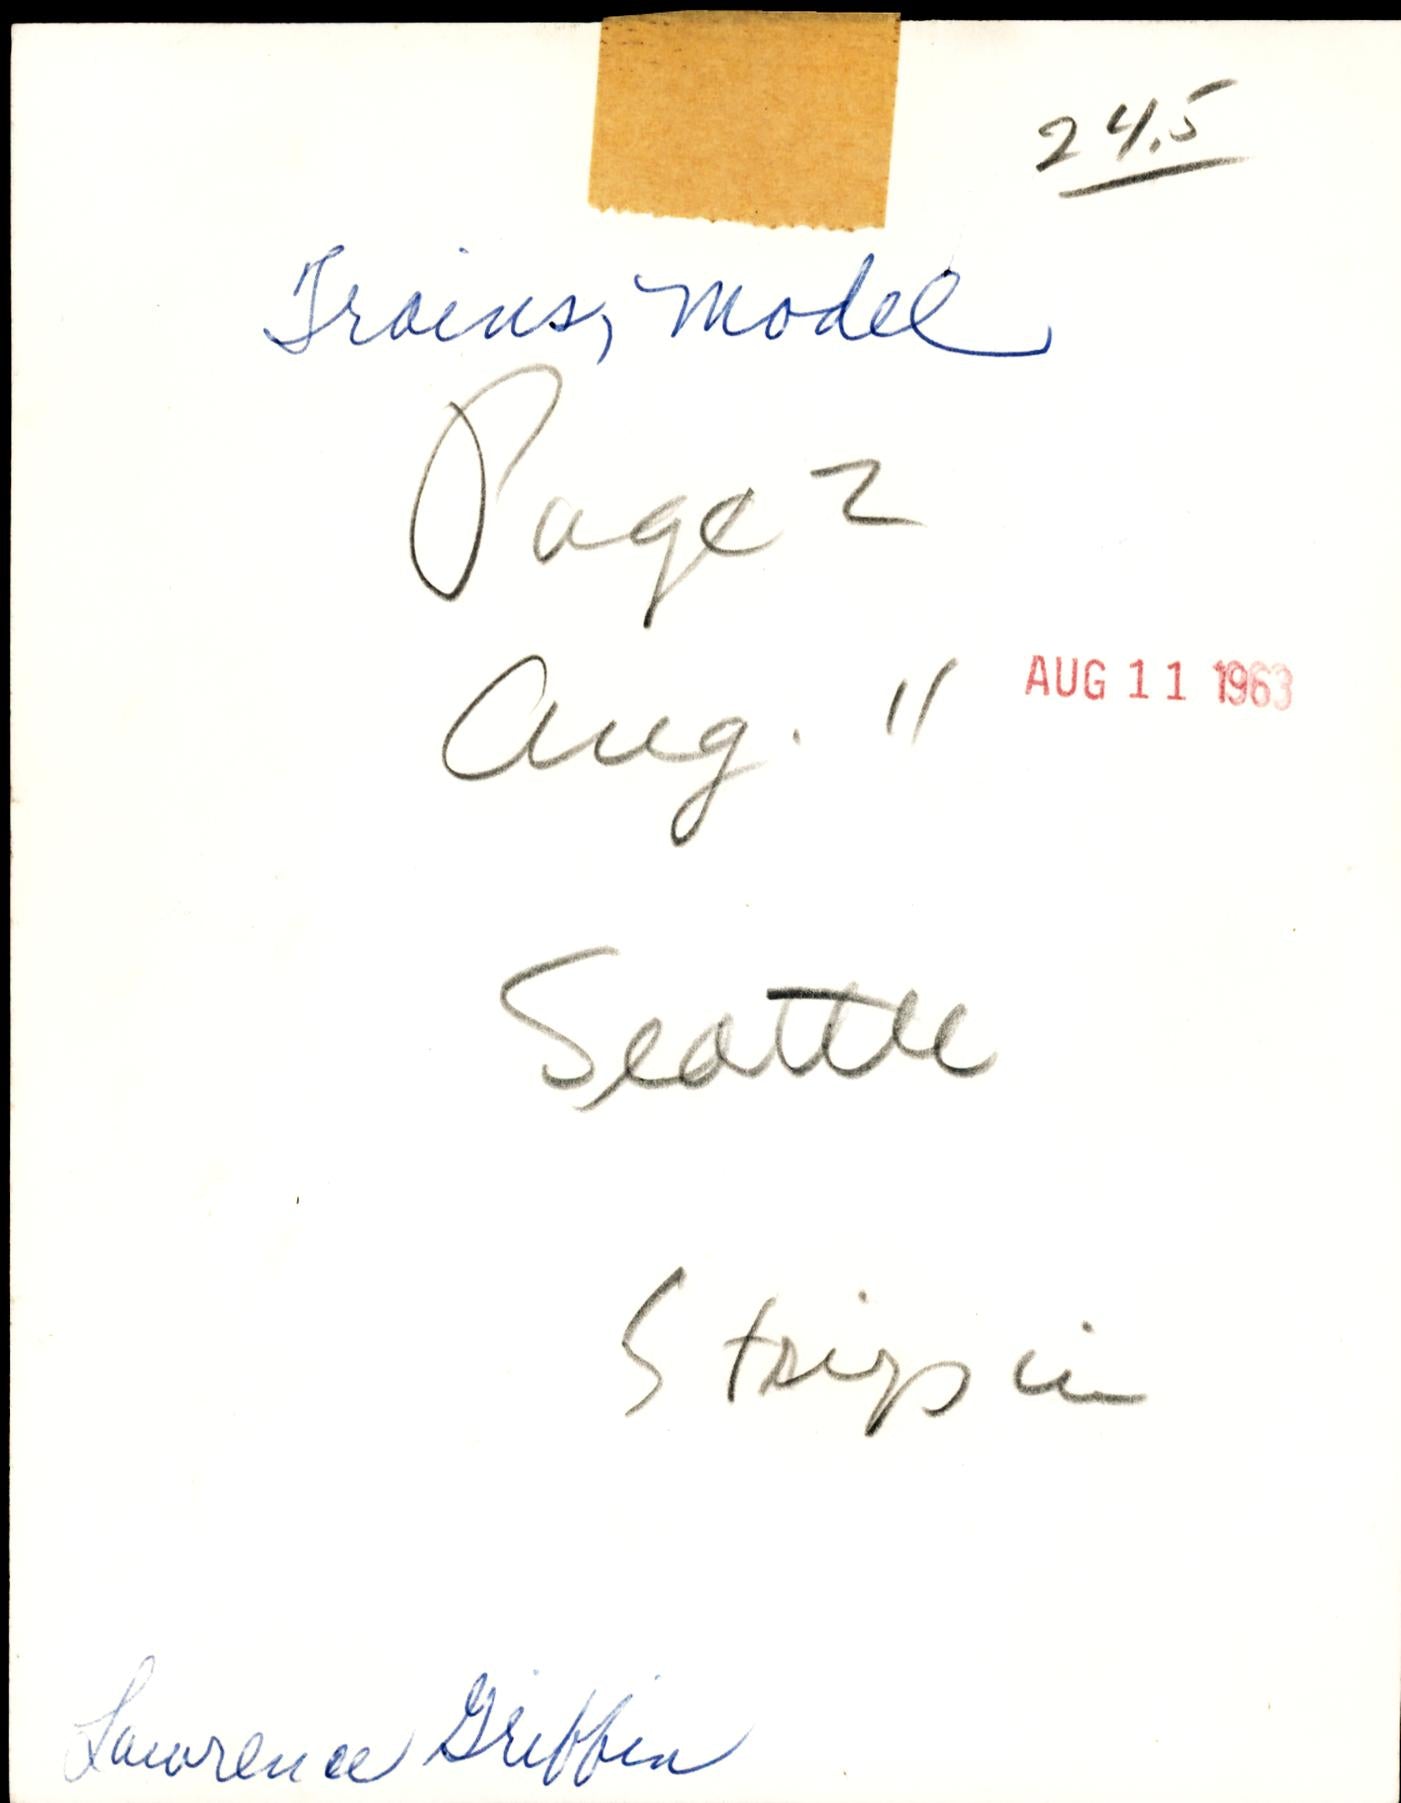 24.5
Trains, Model
Page 2
Aug. 11 AUG 11 1963
Seattle
Strip in
Lawrence Griffin